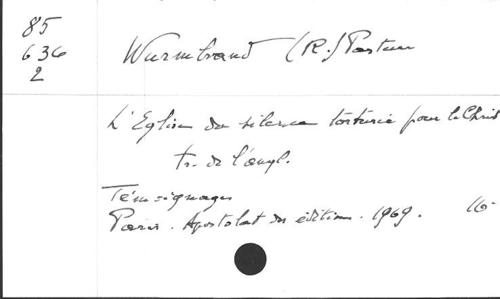 85
636
2
Wurmbrand (R.) Pasteur
L'Eglise du silence torturée pour le Christ
tr. de l'angl.
Témoignages
Paris. Apostolat des éditions. 1969. 16-